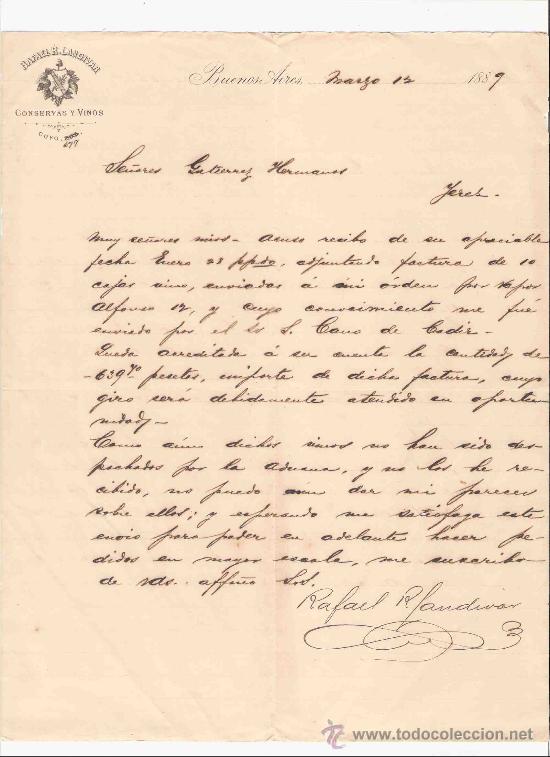 RAFAEL R. LANDIVAR
CONSERVAS Y VINOS
CUYO,
677
Buenos Aires, Marzo 12 1889
Señores Gutierrez Hermanos
Jerez.
Muy señores mios - acuso recibo de su apreciable
fecha Enero 23 ppdo, adjuntando factura de 10
cajas vino, enviadas á mi órden por vapor
Alfonso 12, y cuyo conocimiento me fué
enviado por el Sr S. Cano de Cadiz -
Queda acreditada á su cuenta la cantidad de
639.70 pesetas, importe de dicha factura, cuyo
giro será debidamente atendido en oportu
nidad -
Como aún dichos vinos no han sido des
pachados por la aduana, y no los he re-
cibido, no puedo aun dar mi parecer
sobre ellos; y esperando me satisfaga este
envio para poder en adelante hacer pe-
didos en mayor escala, me suscribo
de Vds. affmo S.S.
Rafael R Landivar
www.todocoleccion.net